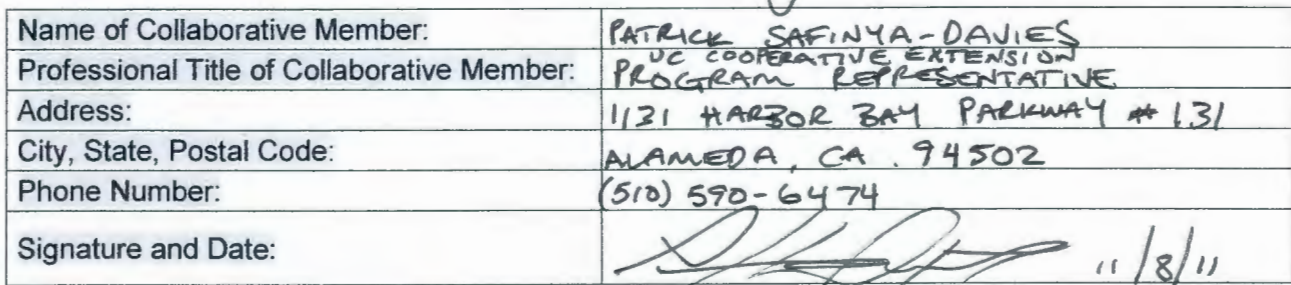 Name of Collaborative Member: PATRICK SAFINYA-DAVIES
Professional Title of Collaborative Member: UC COOPERATIVE EXTENSION
PROGRAM REPRESENTATIVE
Address: 1131 HARBOR BAY PARKWAY # 131
City, State, Postal Code: ALAMEDA, CA. 94502
Phone Number: (510) 590-6474
Signature and Date: 11/8/11